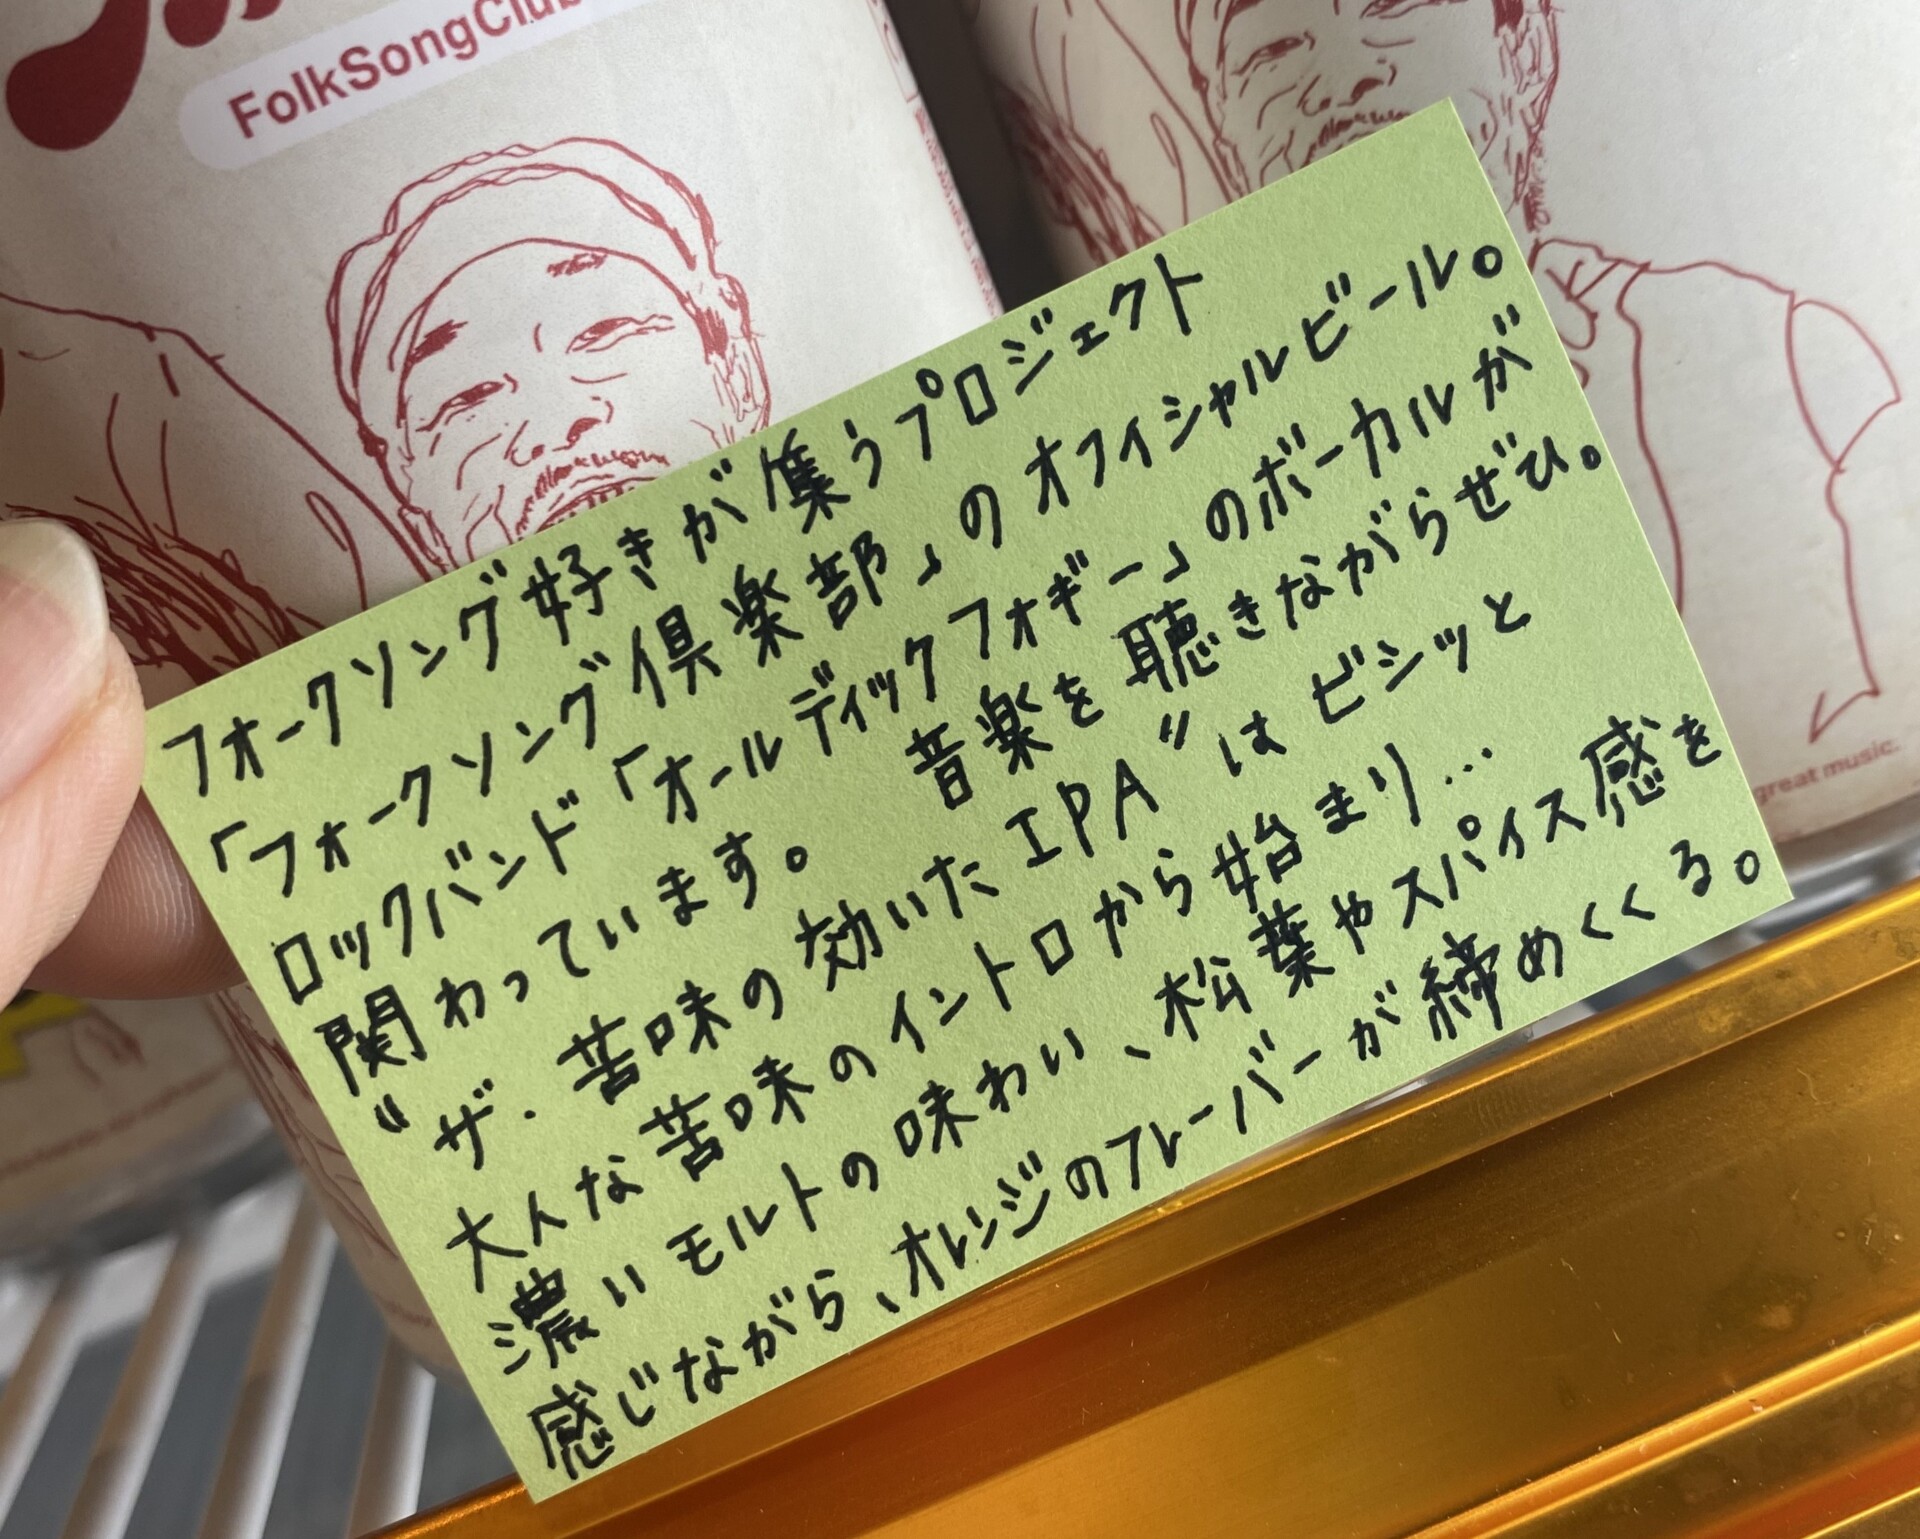 FolkSongClub
フォークソング好きが集うプロジェクト
「フォークソング倶楽部」のオフィシャルビール。
ロックバンド「オールディックフォギー」のボーカルが
関わっています。 音楽を聴きながらぜひ。
"ザ・苦味の効いたIPA"はビシッと
大人な苦味のイントロから始まり…
濃いモルトの味わい、松葉やスパイス感を
感じながら、オレンジのフレーバーが締めくくる。
great music.